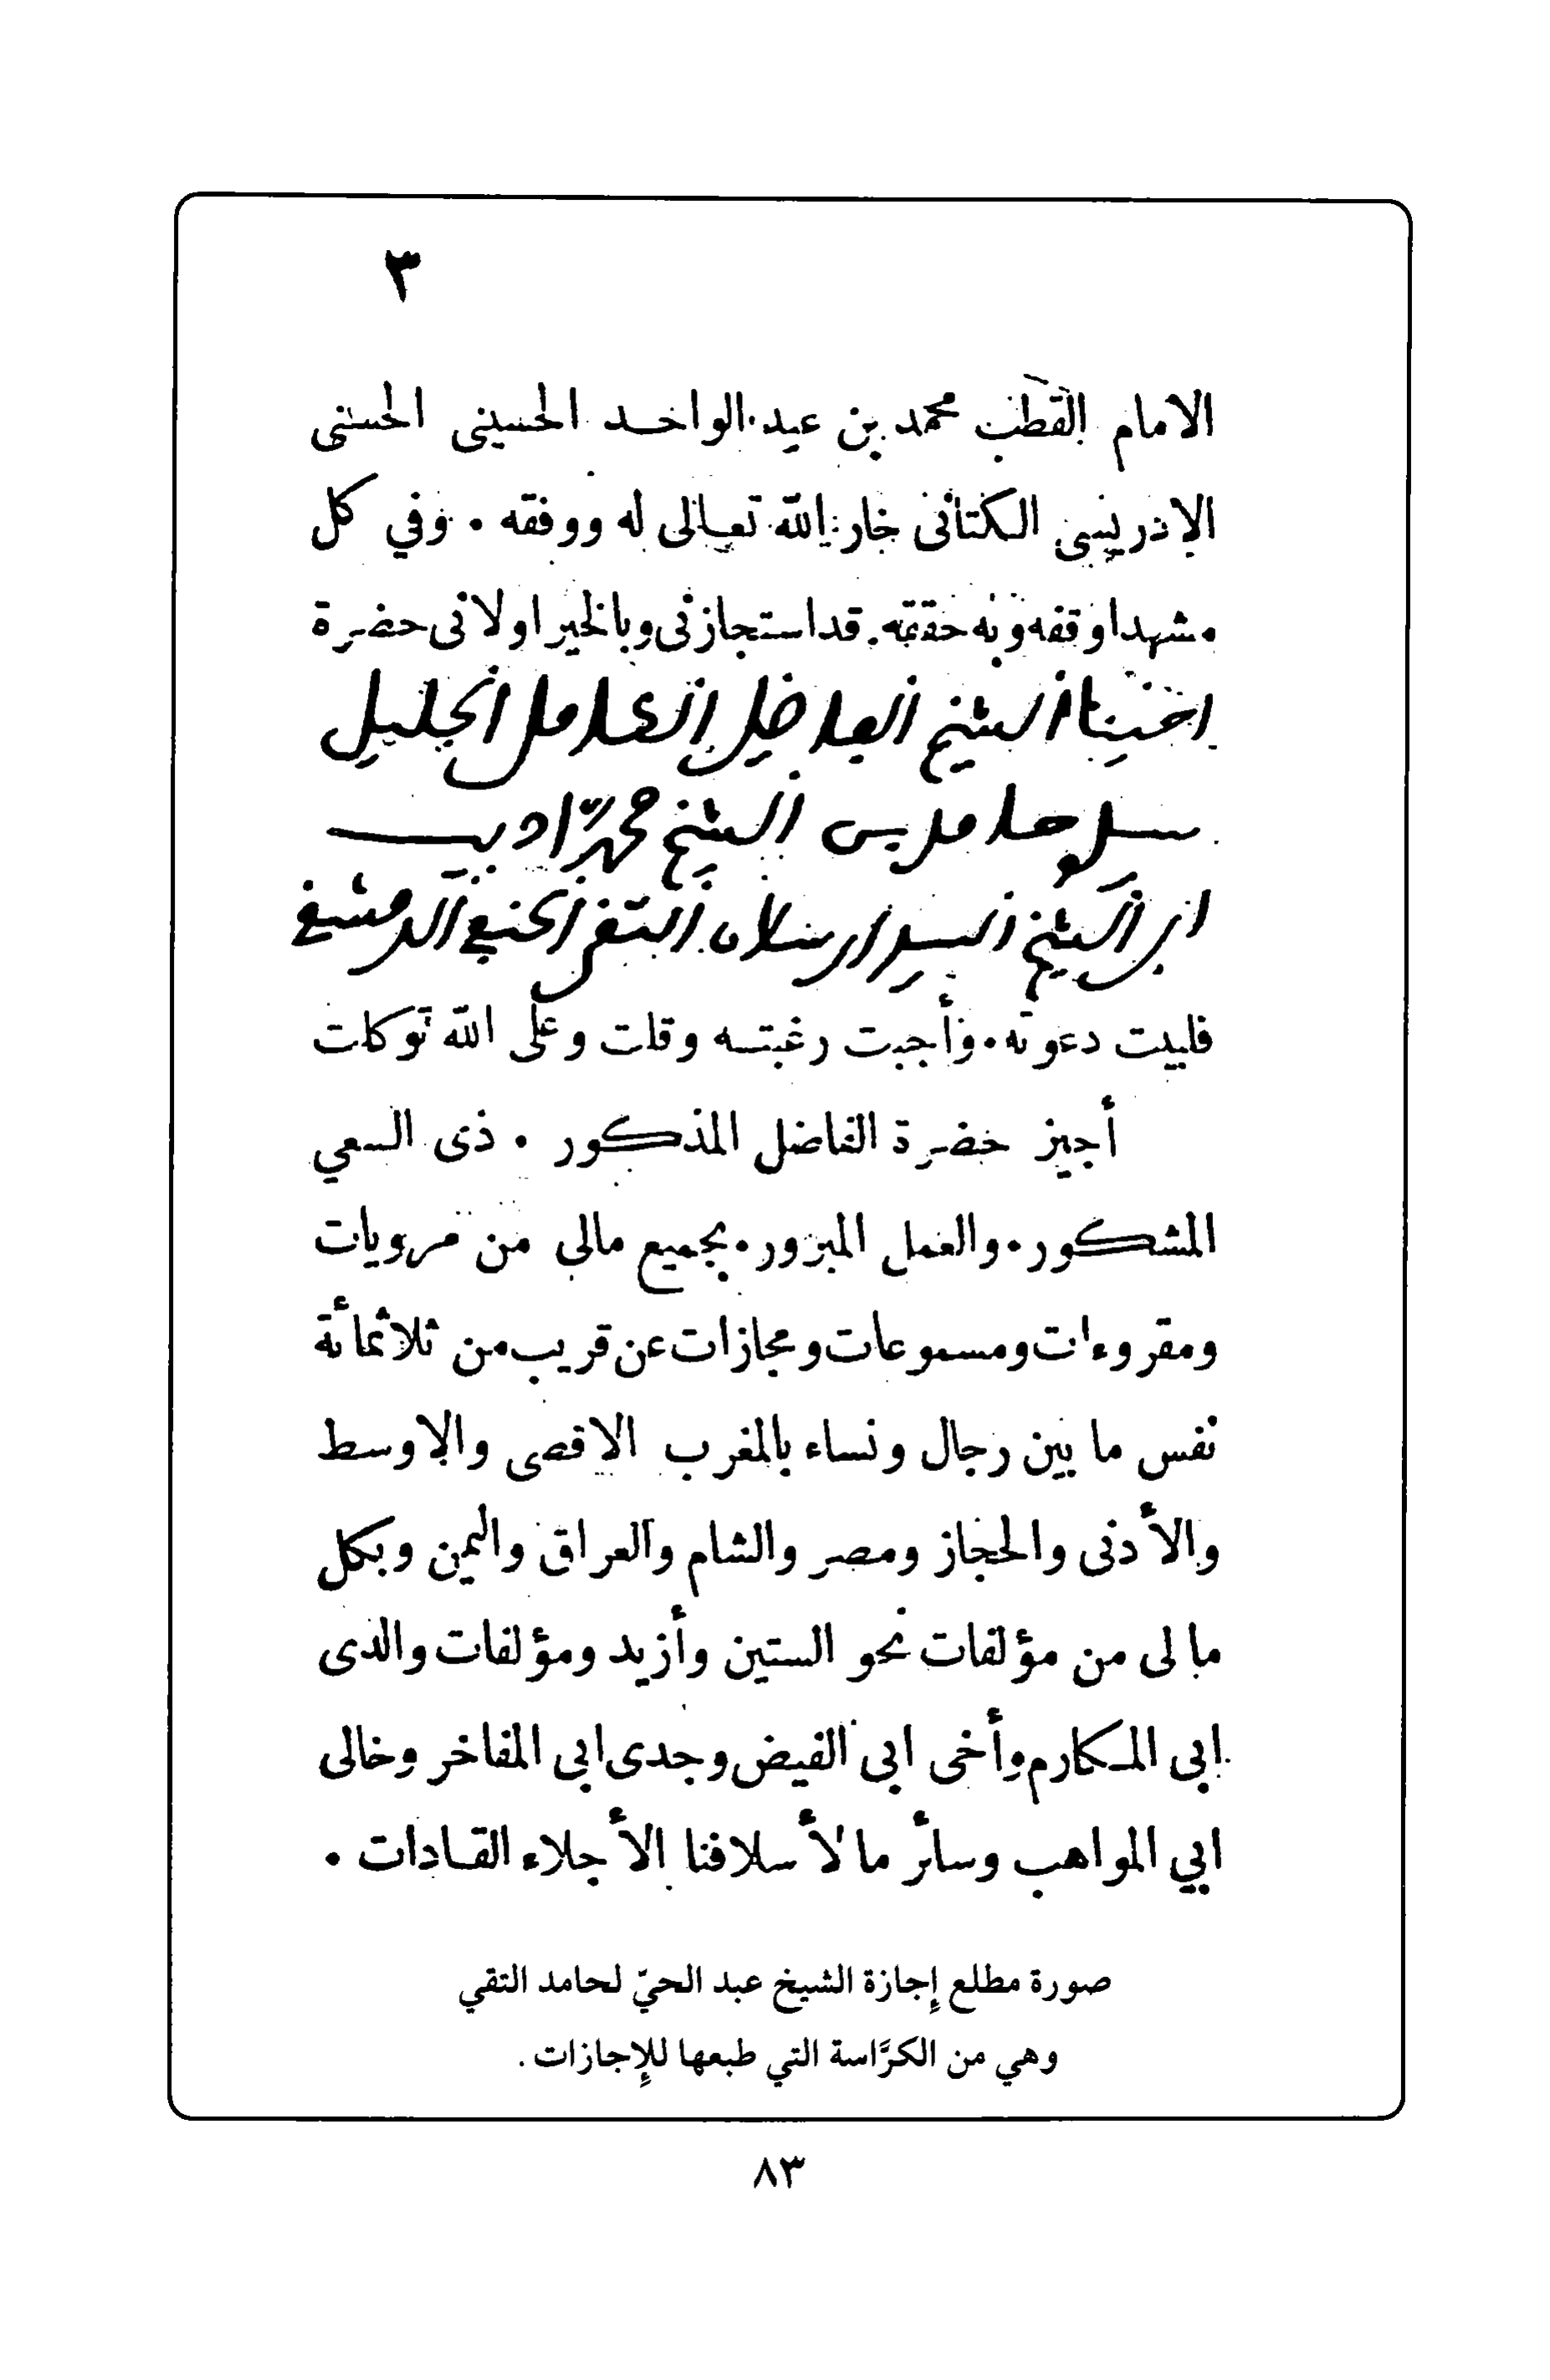 ٣
الامام القطب محمد بن عبد الواحد الحسينى الحسنى
الادريسى الكتانى خار الله تعالى له ووفقه • وفي كل
مشهد اوقفه وبه حققه. قد استجازنى وبالخير اولانى حضرة
اخينا الشيخ الفاضل العامل الجليل
سيدى حامد بن الشيخ محمد اديب
ابن الشيخ السيد ارسلان التقى الحنفى الدمشقى
فلبيت دعوته • وأجبت رغبته وقلت وعلى الله توكلت
أجيز حضرة الفاضل المذكور • ذى السعي
المشكور • والعمل المبرور • بجميع مالى من مرويات
ومقروءات ومسموعات ومجازات عن قريب من ثلاثمائة
نفس ما بين رجال ونساء بالمغرب الاقصى والاوسط
والأدنى والحجاز ومصر والشام والعراق واليمن وبكل
مالى من مؤلفات نحو الستين وأزيد ومؤلفات والدى
ابى المكارم وأخى ابى الفيض وجدى ابى المفاخر وخالى
ابي المواهب وسائر ما لأسلافنا الأجلاء القادات •
صورة مطلع إجازة الشيخ عبد الحيّ لحامد التقي
وهي من الكرَّاسة التي طبعها للإجازات .
٨٣